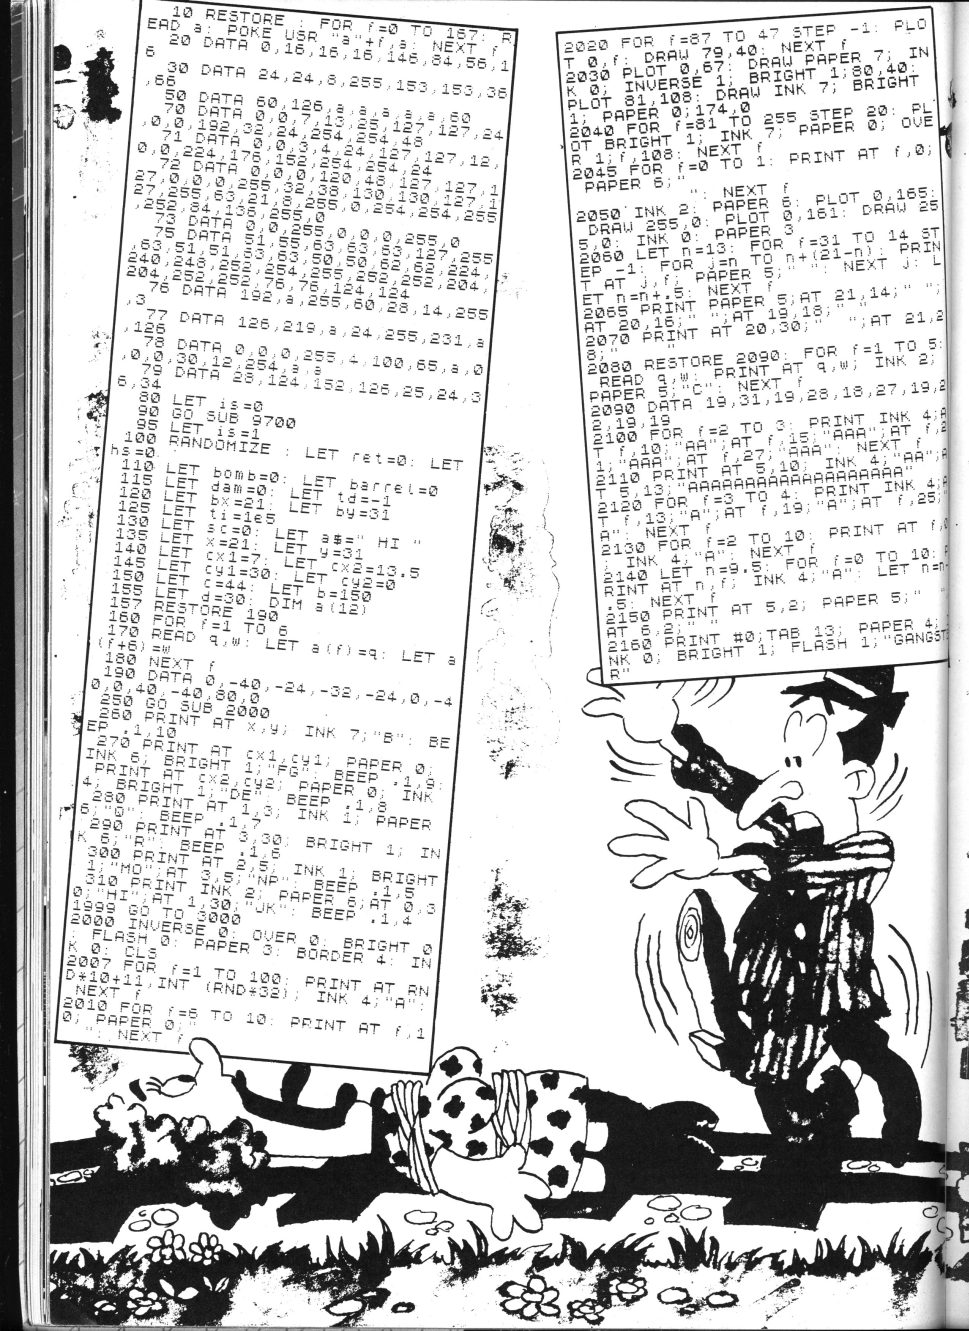 10 RESTORE : FOR f=0 TO 167: R
EAD a: POKE USR "a"+f,a: NEXT f
20 DATA 0,16,16,16,146,84,56,1
6
30 DATA 24,24,8,255,153,153,36
,66
50 DATA 60,126,a,a,a,a,a,60
70 DATA 0,0,7,13,25,127,127,24
,0,0,192,32,24,254,254,48
71 DATA 0,0,3,4,24,127,127,12,
0,0,224,176,152,254,254,24
72 DATA 0,0,0,120,48,127,127,1
27,0,0,0,255,32,38,130,130,127,1
27,255,63,21,8,255,0,254,254,255
,252,84,136,255,0
73 DATA 0,0,255,0,0,0,255,0
75 DATA 51,55,63,63,63,127,255
,63,51,51,63,63,50,50,62,62,224,
240,248,252,254,255,252,252,204,
204,252,252,76,76,124,124
76 DATA 192,a,255,60,28,14,255
,3
77 DATA 126,219,a,24,255,231,a
,126
78 DATA 0,0,0,255,4,100,65,a,0
,0,0,30,12,254,a,a
79 DATA 28,124,152,126,25,24,3
6,34
80 LET is=0
90 GO SUB 9700
95 LET is=1
100 RANDOMIZE : LET ret=0: LET
hs=0
110 LET bomb=0: LET barrel=0
115 LET dam=0: LET td=-1
120 LET bx=21: LET by=31
125 LET ti=1e5
130 LET sc=0: LET a$=" HI "
135 LET x=21: LET y=31
140 LET cx1=7: LET cx2=13.5
145 LET cy1=30: LET cy2=0
150 LET c=44: LET b=150
155 LET d=30: DIM a(12)
157 RESTORE 190
160 FOR f=1 TO 6
170 READ q,w: LET a(f)=q: LET a
(f+6)=w
180 NEXT f
190 DATA 0,-40,-24,-32,-24,0,-4
0,0,40,-40,80,0
250 GO SUB 2000
260 PRINT AT x,y; INK 7;"B": BE
EP .1,10
270 PRINT AT cx1,cy1; PAPER 0;
INK 6; BRIGHT 1;"FG": BEEP .1,9:
PRINT AT cx2,cy2; PAPER 0; INK
4; BRIGHT 1;"DE": BEEP .1,8
280 PRINT AT 1,3; INK 1; PAPER
6;"Q": BEEP .1,7
290 PRINT AT 3,30; BRIGHT 1; IN
K 6;"R": BEEP .1,6
300 PRINT AT 2,5; INK 1; BRIGHT
1;"MO";AT 3,5;"NP": BEEP .1,5
310 PRINT INK 2; PAPER 6;AT 0,3
0;"HI";AT 1,30;"JK": BEEP .1,4
1999 GO TO 3000
2000 INVERSE 0: OVER 0: BRIGHT 0
: FLASH 0: PAPER 3: BORDER 4: IN
K 0: CLS
2007 FOR f=1 TO 100: PRINT AT RN
D*10+11,INT (RND*32); INK 4;"A":
NEXT f
2010 FOR f=6 TO 10: PRINT AT f,1
0; PAPER 0;"
": NEXT f
2020 FOR f=87 TO 47 STEP -1: PLO
T 0,f: DRAW 79,40: NEXT f
2030 PLOT 0,67: DRAW PAPER 7; IN
K 0; INVERSE 1; BRIGHT 1;80,40:
PLOT 81,108: DRAW INK 7; BRIGHT
1; PAPER 0;174,0
2040 FOR f=81 TO 255 STEP 20: PL
OT BRIGHT 1; INK 7; PAPER 0; OVE
R 1;f,108: NEXT f
2045 FOR f=0 TO 1: PRINT AT f,0;
PAPER 6;"
": NEXT f
2050 INK 2: PAPER 6: PLOT 0,165:
DRAW 255,0: PLOT 0,161: DRAW 25
5,0: INK 0: PAPER 3
2060 LET n=13: FOR f=31 TO 14 ST
EP -1: FOR j=n TO n+(21-n): PRIN
T AT j,f; PAPER 5;" ": NEXT j: L
ET n=n+.5: NEXT f
2065 PRINT PAPER 5;AT 21,14;" ";
AT 20,16;" ";AT 19,18;" "
2070 PRINT AT 20,30;"  ";AT 21,2
8;"
2080 RESTORE 2090: FOR f=1 TO 5:
READ q,w: PRINT AT q,w; INK 2;
PAPER 5;"C": NEXT f
2090 DATA 19,31,19,28,18,27,19,2
2,19,19
2100 FOR f=2 TO 3: PRINT INK 4;A
T f,10;"AA";AT f,15;"AAA";AT f,2
1;"AAA";AT f,27;"AAA": NEXT f
2110 PRINT AT 5,10; INK 4;"AA";A
T 5,13;"AAAAAAAAAAAAAAAAAAA"
2120 FOR f=3 TO 4: PRINT INK 4;A
T f,13;"A";AT f,19;"A";AT f,25;"
A": NEXT f
2130 FOR f=2 TO 10: PRINT AT f,0
; INK 4;"A": NEXT f
2140 LET n=9.5: FOR f=0 TO 10: P
RINT AT n,f; INK 4;"A": LET n=n-
.5: NEXT f
2150 PRINT AT 5,2; PAPER 5;"  "
AT 6,2;" "
2160 PRINT #0;TAB 13; PAPER 4; I
NK 0; BRIGHT 1; FLASH 1;"GANGSTE
R"